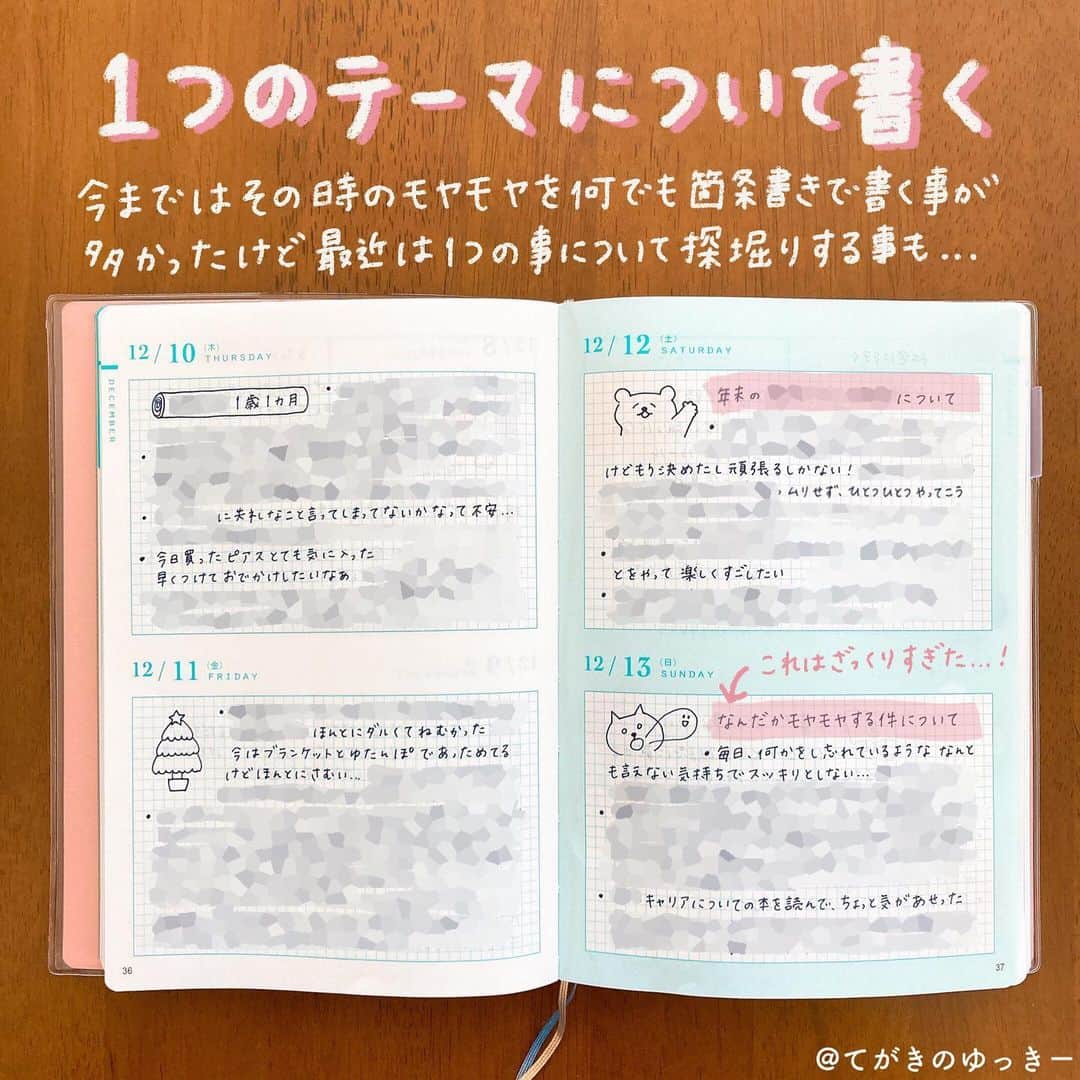 1つのテーマについて書く
今まではその時のモヤモヤを何でも箇条書きで書く事が
多かったけど最近は1つの事について探堀りする事も...
12/10 (木) THURSDAY
DECEMBER
1歳1カ月
に失礼なこと言ってしまってないかなって不安...
• 今日買ったピアスとても気に入った
早くつけておでかけしたいなあ
12/11 (金) FRIDAY
ほんとにダルくてねむかった
今はブランケットとゆたんぽであっためてる
けどほんとにさむい...
36
12/12 (土) SATURDAY
年末の について
けどもう決めたし頑張るしかない!
、ムリせず、ひとつひとつやってこう
とをやって楽しくすごしたい
12/13 (日) SUNDAY
これはざっくりすぎた...!
なんだかモヤモヤする件について
• 毎日、何かをし忘れているような なんと
も言えない気持ちでスッキリとしない...
キャリアについての本を読んで、ちょっと気があせった
37
@てがきのゆっきー